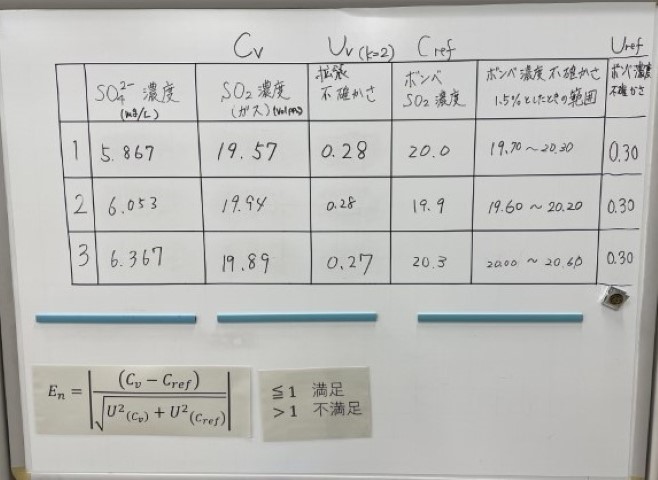 Cv Uv (k=2) Cref Uref
SO₄²⁻ 濃度 (mg/L) SO₂ 濃度 (ガス) (volppm) 拡張 不確かさ ボンベ SO₂ 濃度 ボンベ濃度不確かさ 1.5%としたときの範囲 ボンベ濃度 不確かさ
1 5.867 19.57 0.28 20.0 19.70〜20.30 0.30
2 6.053 19.94 0.28 19.9 19.60〜20.20 0.30
3 6.367 19.89 0.27 20.3 20.00〜20.60 0.30
En = |(Cv − Cref) / √(U²(Cv) + U²(Cref))|
≦1 満足
>1 不満足